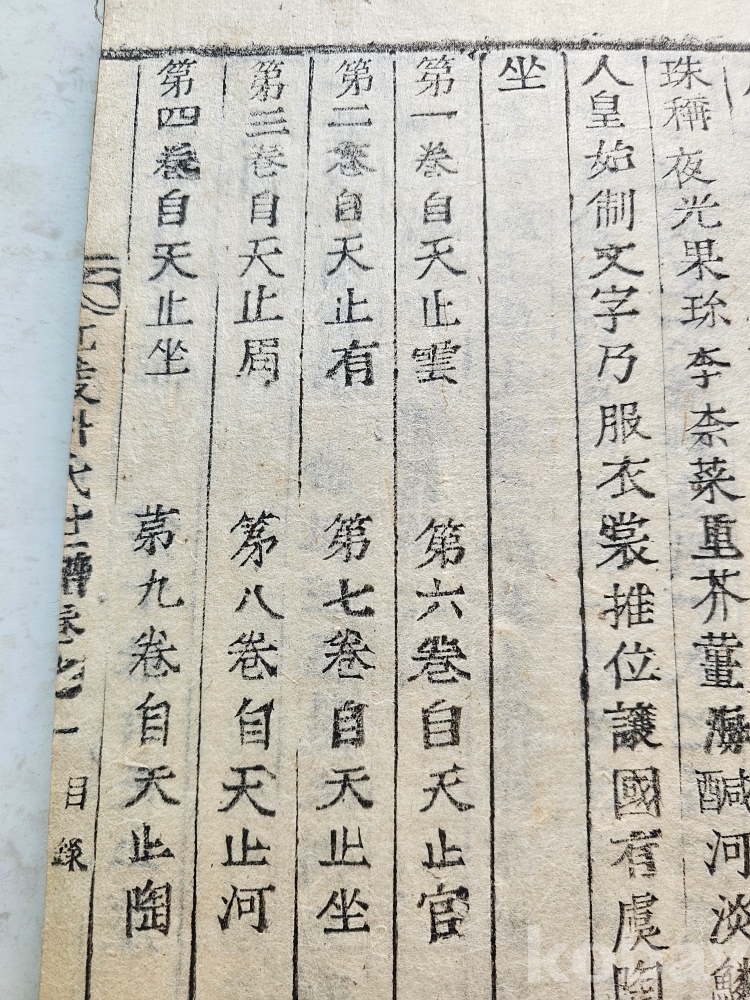 珠稱夜光果珎李柰菜重芥薑海鹹河淡鱗
人皇始制文字乃服衣裳推位讓國有虞陶
坐
第一卷自天止雲 第六卷自天止官
第二卷自天止有 第七卷自天止坐
第三卷自天止 第八卷自天止河
第四卷自天止坐 第九卷自天止陶
氏世譜 一 目錄